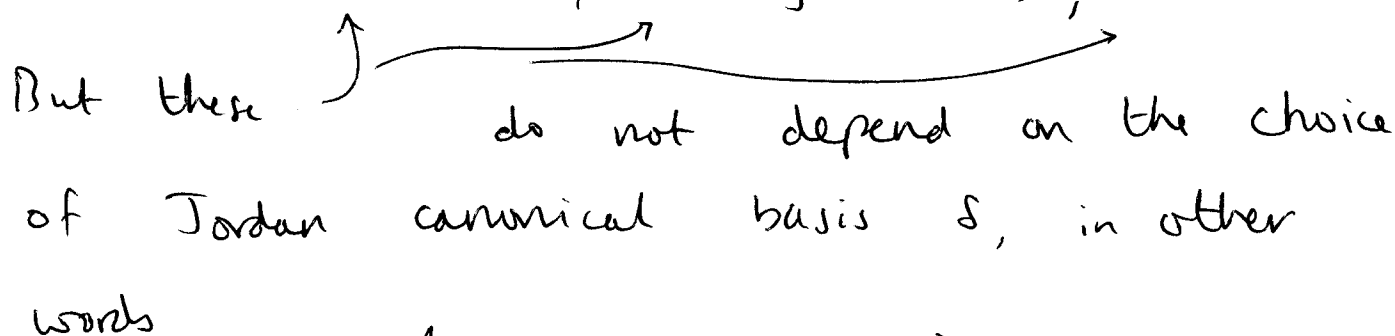 But these do not depend on the choice
of Jordan canonical basis δ, in other
words